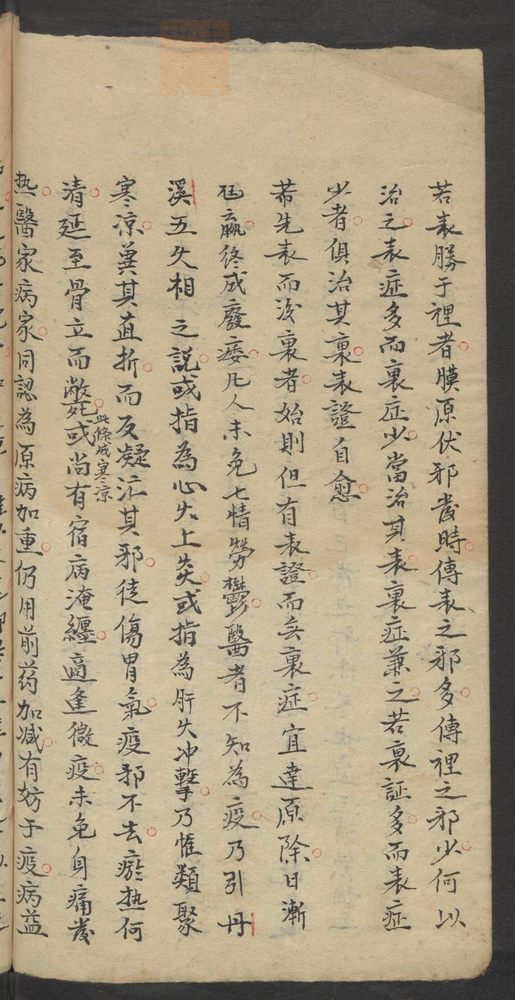 若表勝于裡者膜原伏邪發時傳表之邪多傳裡之邪少何以
治之表症多而裏症少當治其表裏症兼之若裏証多而表症
少者俱治其裏表證自愈
若先表而後裏者始則但有表證而無裏症宜達原除日漸
尪羸終成廢痿凡人未免七情勞鬱醫者不知為疫乃引丹
溪五火相之説或指為心火上炎或指為肝火冲擊乃惟類聚
寒涼冀其直折而反凝泣其邪徒傷胃氣疫邪不去瘀热何
清延至骨立而斃或尚有宿病淹纏適逢微疫未免身痛發
此條戒寒涼
热醫家病家同認為原病加重仍用前药加减有妨于疫病益